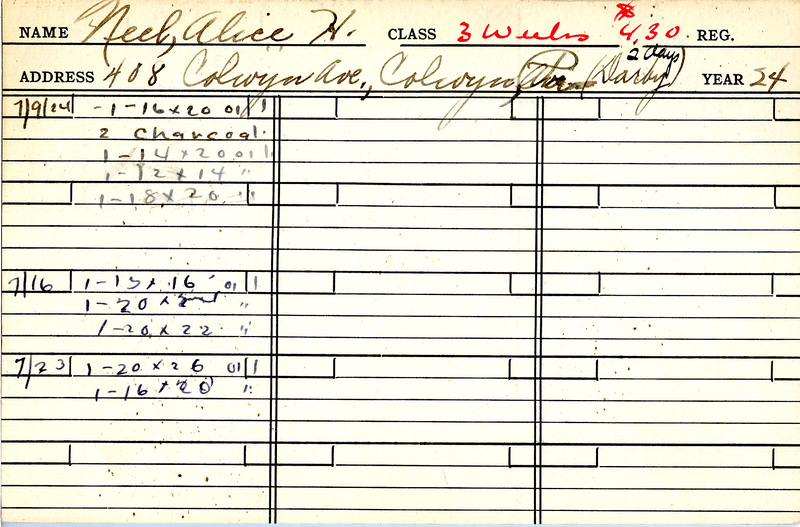 NAME Neeb, Alice H. CLASS 3 Weeks $4.30 REG.
2 days
ADDRESS 408 Colwyn Ave., Colwyn, Pa (Darby) YEAR 24
7/9/24 -1-16x20 oil
2 charcoal.
1-14x20 oil
1-12x14 "
1-18x20 "
7/16 1-13x16 oil
1-20x "
1-20x22 "
7/23 1-20x26 oil
1-16x20 "